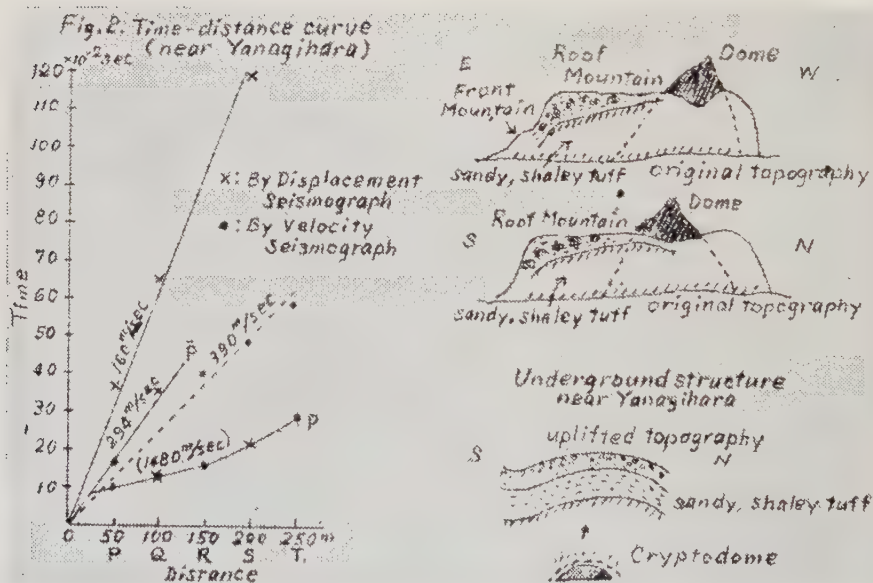 Fig. 2. Time-distance curve
(near Yanagihara)
×10⁻² sec
120
110
100
90
80
70
60
50
40
30
20
10
Time
×: By Displacement
Seismograph
•: By Velocity
Seismograph
160 m/sec
294 m/sec
p̄
390 m/sec
(1480 m/sec)
p
0 50 100 150 200 250 m
P Q R S T.
Distance
E Roof Mountain Dome W
Front Mountain
sandy, shaley tuff original topography
Dome
S Roof Mountain N
sandy, shaley tuff original topography
Underground structure
near Yanagihara
uplifted topography
S N
sandy, shaley tuff
Cryptodome